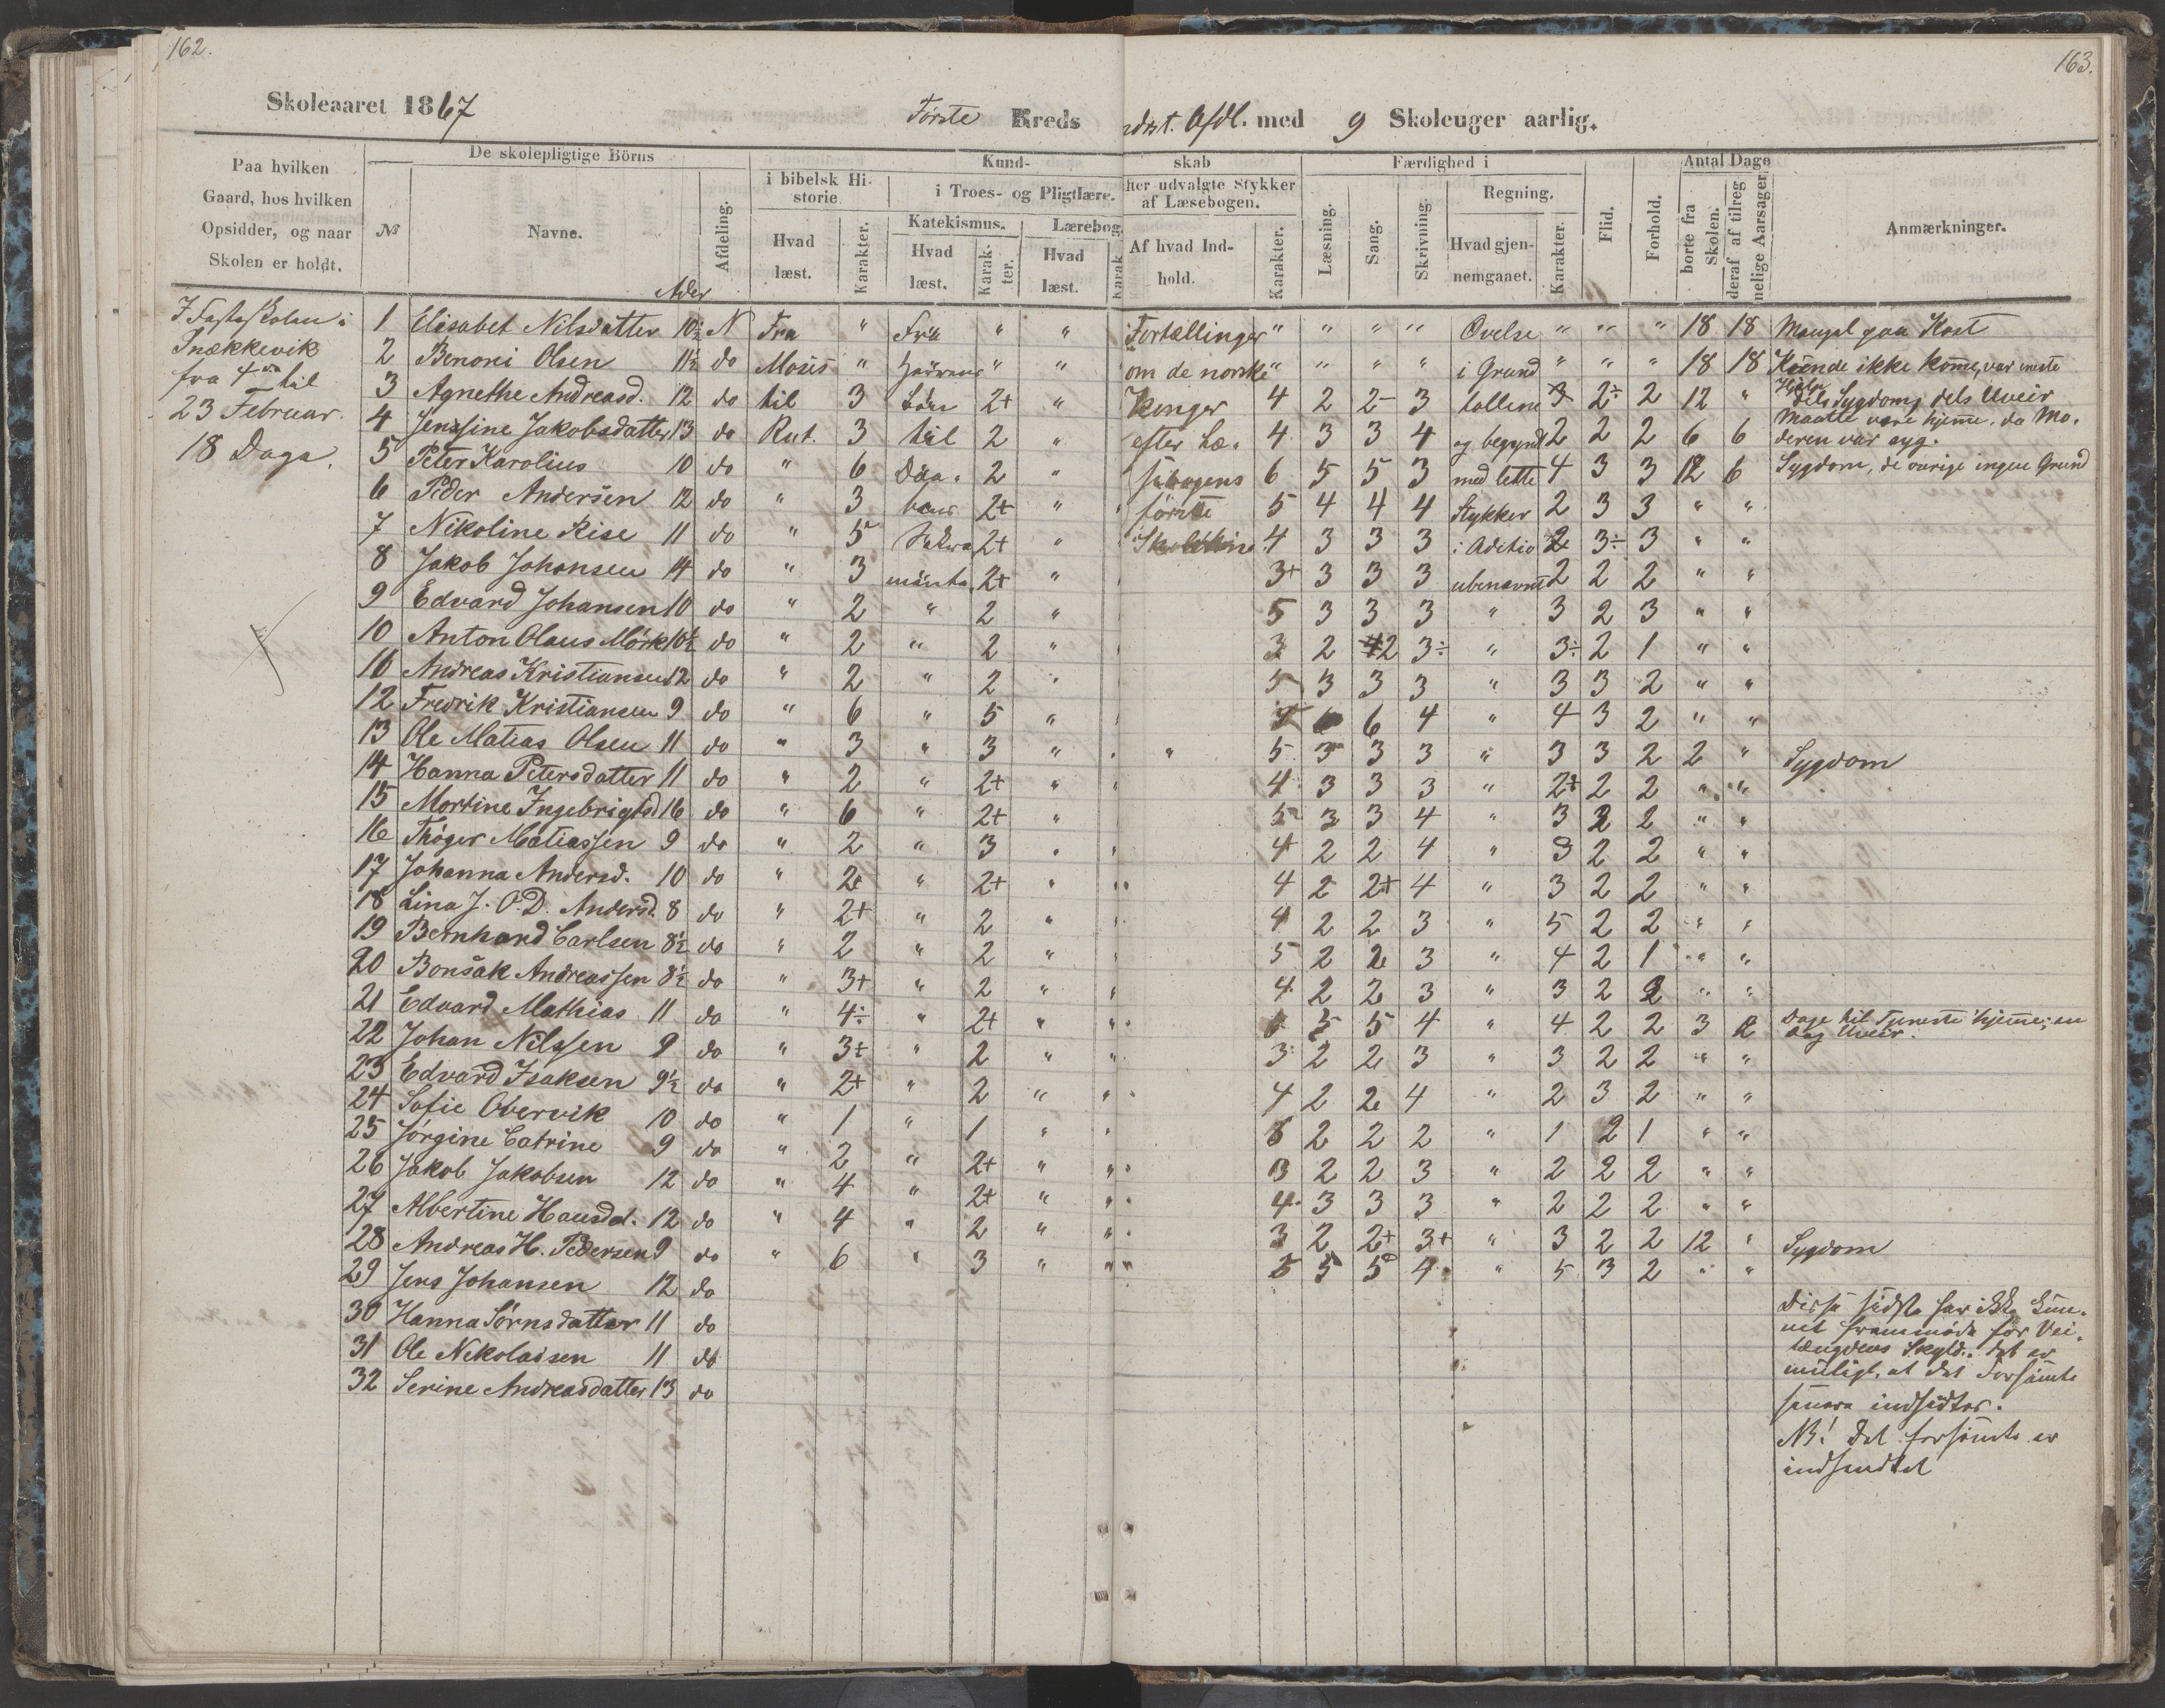 162.
163.
Skoleaaret 1867
Første Kreds
Afdl. med 9 Skoleuger aarlig.
Paa hvilken Gaard, hos hvilken Opsidder, og naar Skolen er holdt.
De skolepligtige Börns
№
Navne.
Alder
Afdeling.
Kundskab
i bibelsk Historie
i Troes- og Pligtlære.
Katekismus.
Lærebog
Hvad læst.
Karakter.
Hvad læst.
Karakter.
Hvad læst.
Karak
ter udvalgte Stykker af Læsebogen.
Af hvad Indhold.
Karakter.
Færdighed i
Læsning.
Sang.
Skrivning.
Regning.
Hvad gjennemgaaet.
Karakter.
Flid.
Forhold.
Antal Dage
borte fra Skolen.
deraf af tilregnelige Aarsager
Anmærkninger.
I Fasteskolen i
Snækkevik
fra 4de til
23 Februar.
18 Dage.
1 Elisabet Nilsdatter 10½ N Fra " Fra " " Fortællinger " " " " Øvelse " " " 18 18 Mangel paa Kost
2 Benoni Olsen 11½ do Moses " " " om de norske " " " " i Grund " " " 18 18 Kunde ikke komme, var
3 Agnethe Andreasd. 12 do til 3 2+ " Konger 4 2 2- 3 tallene 3 2÷ 2 12 " dels Sygdom, dels Uveir
4 Jenssine Jakobsdatter 13 do Rut. 3 til 2 " efter Læ- 4 3 3 4 og begyndt 2 2 2 6 6 Maatte være hjemme, da Moderen var syg.
5 Peter Karolius 10 do " 6 Daa- 2 " sebogens 6 5 5 3 med lette 4 3 3 12 6 Sygdom, de øvrige ingen Grund
6 Peder Andersen 12 do " 3 bens 2+ " første 5 4 4 4 Stykker 2 3 3 " "
7 Nikoline Rise 11 do " 5 Sakra 2+ " 4 3 3 3 i Aditio 2 3÷ 3 " "
8 Jakob Johansen 14 do " 3 mente. 2+ " 3+ 3 3 3 ubenævnt 2 2 2 " "
9 Edvard Johansen 10 do " 2 " 2 " 5 3 3 3 " 3 2 3 " "
10 Anton Olaus Mörk 10½ do " 2 " 2 " 3 2 2 3÷ " 3÷ 2 1 " "
10 Andreas Kristiansen 12 do " 2 " 2 " 5 3 3 3 " 3 3 2 " "
12 Fredrik Kristiansen 9 do " 6 " 5 " 6 6 4 " 4 3 2 " "
13 Ole Matias Olsen 11 do " 3 " 3 " " 5 3 3 3 " 3 3 2 2 " Sygdom
14 Hanna Petersdatter 11 do " 2 " 2+ " 4 3 3 3 " 2+ 2 2 " "
15 Martine Ingebrigtsd 16 do " 6 " 2+ " 5 3 3 4 " 3 2 2 " "
16 Thöger Matiassen 9 do " 2 " 3 " 4 2 2 4 " 3 2 2 " "
17 Johanna Andersd. 10 do " 2+ " 2+ " 4 2 2+ 4 " 3 2 2 " "
18 Lina J. O. D. Andersd. 8 do " 2+ " 2 " 4 2 2 3 " 5 2 2 " "
19 Bernhard Carlsen 8½ do " 2 " 2 " 5 2 2 3 " 4 2 1 " "
20 Bonsak Andreassen 8½ do " 3+ " 2 " 4 2 2 3 " 3 2 2 " "
21 Edvard Mathias 11 do " 4÷ " 2+ " 6 5 5 4 " 4 2 2 3 2 Dage til Tjeneste hjemme; en Dag Uveir.
22 Johan Nilssen 9 do " 3+ " 2 " 3 2 2 3 " 3 2 2 " "
23 Edvard Isaksen 9½ do " 2+ " 2 " 4 2 2 4 " 2 3 2 " "
24 Sofie Obervik 10 do " 1 " 1 " 2 2 2 " 1 2 1 " "
25 Jörgine Catrine 9 do " 2 " 2+ " 3 2 2 3 " 2 2 2 " "
26 Jakob Jakobsen 12 do " 4 " 2+ " 4 3 3 3 " 2 2 2 " "
27 Albertine Hansd. 12 do " 4 " 2 " 3 2 2+ 3+ " 3 2 2 12 " Sygdom
28 Andreas H. Pedersen 9 do " 6 " 3 " 5 5 5 4 " 5 3 2 " "
29 Jens Johansen 12 do
30 Hanna Sörnsdatter 11 do
31 Ole Nikolaisen 11 do
32 Serine Andreasdatter 13 do
Disse sidste har ikke kun-
net fremmøde for Vei-
længdens Skyld. Det er
muligt, at det Forsømte
senere indhentes.
NB! Det forsømte er
indhendtet